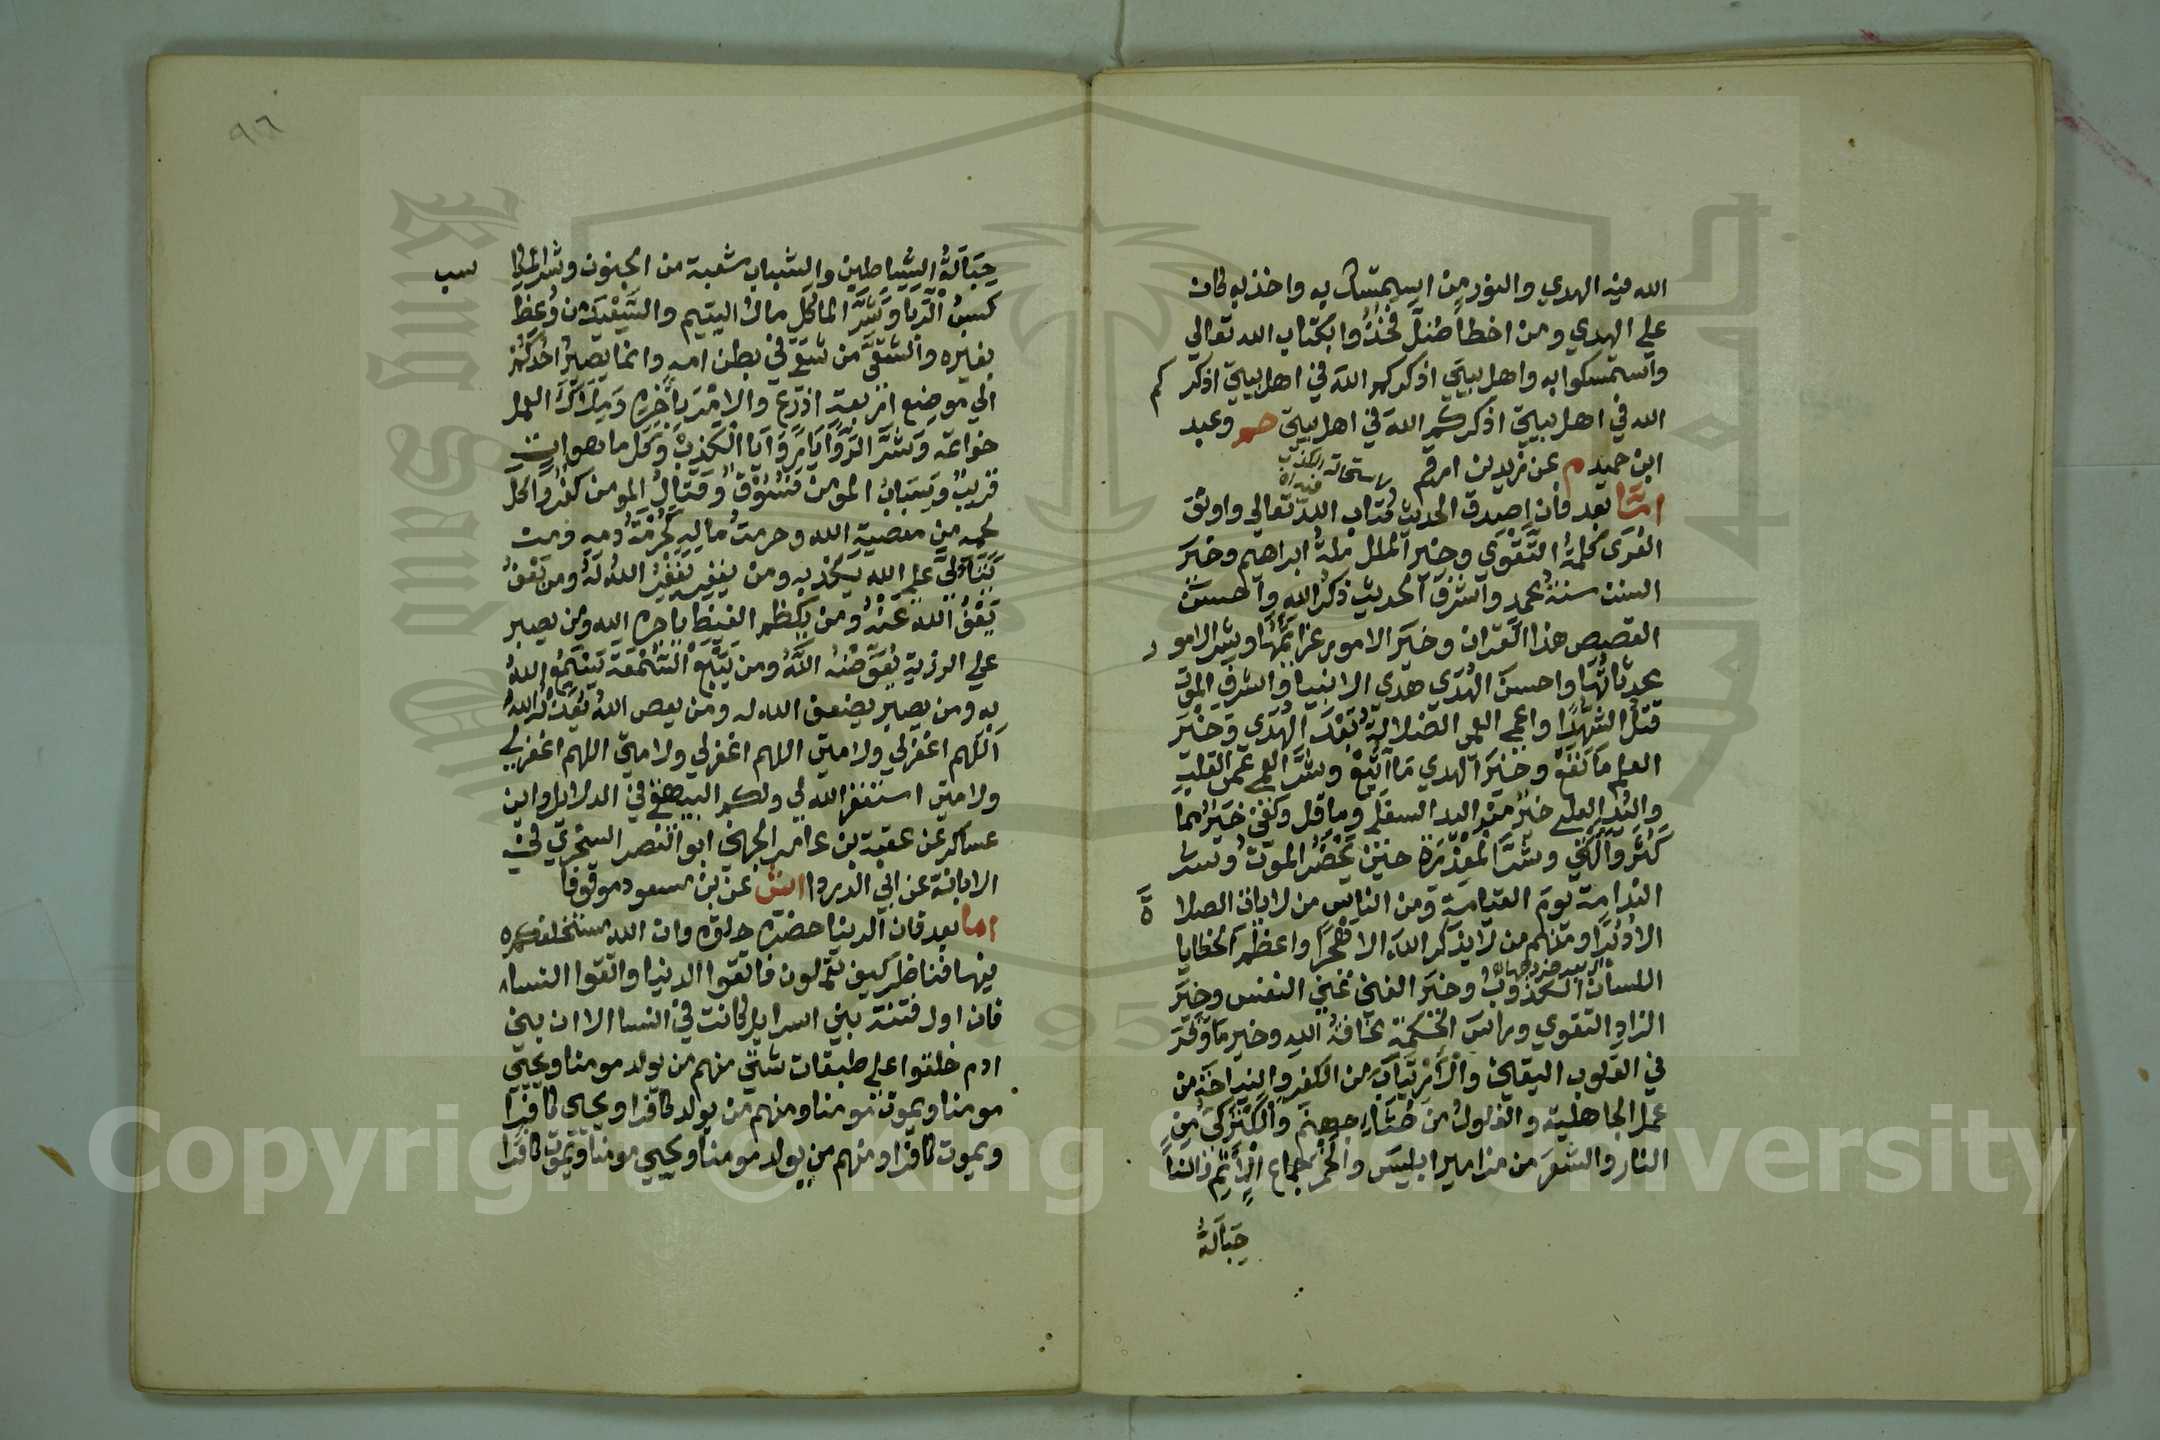 الله فيه الهدي والنور من استمسك به واخذ به كان
علي الهدي ومن اخطأ ضل فخذوا بكتاب الله تعالي
واستمسكوا به واهل بيتي اذكركم الله في اهل بيتي اذكر كم
الله في اهل بيتي اذكركم الله في اهل بيتي حم وعبد
ابن حميد م عن زيد بن ارقم
اما بعد فان اصدق الحديث كتاب الله تعالي واوثق
العرى كلمة التقوي وخير الملل ملة ابراهيم وخير
السنن سنة محمد واشرف الحديث ذكر الله واحسن
القصص هذا القران وخير الامور عزائمها وشر الامو ر
محدثاتها واحسن الهدي هدي الانبيا واشرف الموت
قتل الشهدا واعمي العمي الضلالة بعد الهدي وخير
العلم ما نفع وخير الهدي ما اتبع وشر العمي عمي القلب
واليد العليا خير من اليد السفلي وما قل وكفي خير مما
كثر والهي وشر المعذرة حين يحضر الموت وشر
الندامة يوم القيامة ومن الناس من لا ياتي الصلا ة
الا دبرا ومنهم من لا يذكر الله الا هجرا واعظم الخطايا
اللسان الكذوب وخير الغني غني النفس وخير
الزاد التقوي وراس الحكمة مخافة الله وخير ما وقر
في القلوب اليقين والارتياب من الكفر والنياحة من
عمل الجاهلية والغلول من جثا جهنم والكنز كي من
النار والشعر من مزامير ابليس والخمر جماع الاثم والنسا
حبالة
٩٦
حبالة الشياطين والشباب شعبة من الجنون وشر المكا سب
كسب الربا وشر الماكل مال اليتيم والسعيد من وعظ
بغيره والشقي من شقي في بطن امه وانما يصير احدكم
الي موضع اربعة اذرع والامر باخره وملاك العمل
خواتمه وشر الروايا روايا الكذب وكل ما هو ات
قريب وسباب المومن فسوق وقتال المومن كفر واكل
لحمه من معصية الله وحرمة ماله كحرمة دمه ومن
يتالي علي الله يكذبه ومن يغفر يغفر الله له ومن يعف
يعف الله عنه ومن يكظم الغيظ ياجره الله ومن يصبر
علي الرزية يعوضه الله ومن يتبع السمعة يسمع الله
به ومن يصبر يضعف الله له ومن يعص الله يعذبه الله
اللهم اغفرلي ولامتي اللهم اغفرلي ولامتي اللهم اغفرلي
ولامتي استغفر الله لي ولكم البيهقي في الدلايل وابن
عساكر عن عقبة بن عامر الجهني ابو النصر السجزي في
الابانة عن ابي الدردا ش عن بن مسعود موقوفا
اما بعد فان الدنيا خضرة حلوة وان الله مستخلفكم
فيها فناظر كيف تعملون فاتقوا الدنيا واتقوا النسا
فان اول فتنة بني اسرايل كانت في النسا الا ان بني
ادم خلقوا علي طبقات شتي منهم من يولد مومنا ويحيي
مومنا ويموت مومنا ومنهم من يولد كافرا ويحيي كافرا
ويموت كافرا ومنهم من يولد مومنا ويحيي مومنا ويموت كافرا
Copyright © King Saud University